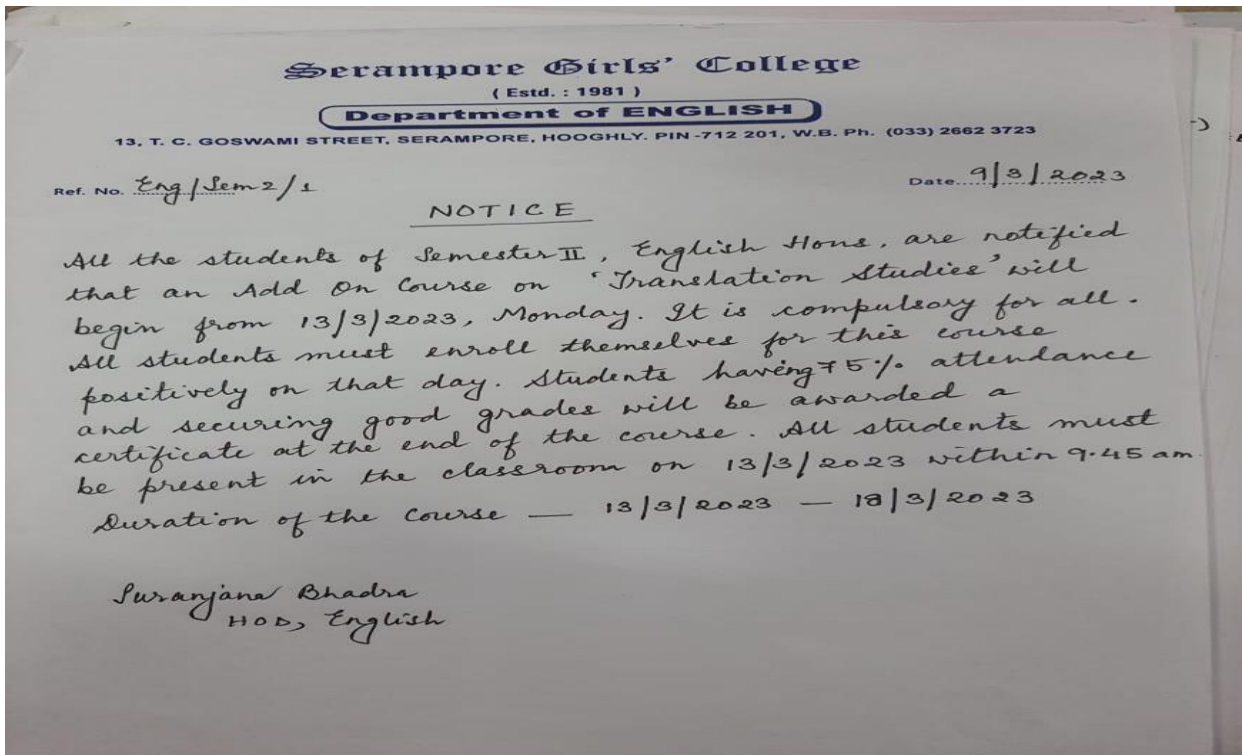 Serampore Girls' College
( Estd. : 1981 )
Department of ENGLISH
13, T. C. GOSWAMI STREET, SERAMPORE, HOOGHLY. PIN -712 201, W.B. Ph. (033) 2662 3723
Ref. No. Eng/Sem 2/1 Date 9/3/2023
NOTICE
All the students of Semester II, English Hons, are notified
that an Add On Course on 'Translation Studies' will
begin from 13/3/2023, Monday. It is compulsory for all.
All students must enroll themselves for this course
positively on that day. Students having 75% attendance
and securing good grades will be awarded a
certificate at the end of the course. All students must
be present in the classroom on 13/3/2023 within 9.45 am.
Duration of the Course — 13/3/2023 — 18/3/2023
Suranjana Bhadra
HOD, English